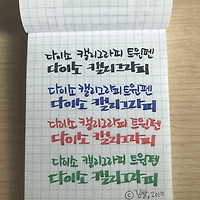 다이소 캘리그라피 트윈펜
다이소 캘리그라피
다이소 캘리그라피 트윈펜
다이소 캘리그라피
다이소 캘리그라피 트윈펜
다이소 캘리그라피
다이소 캘리그라피 트윈펜
다이소 캘리그라피